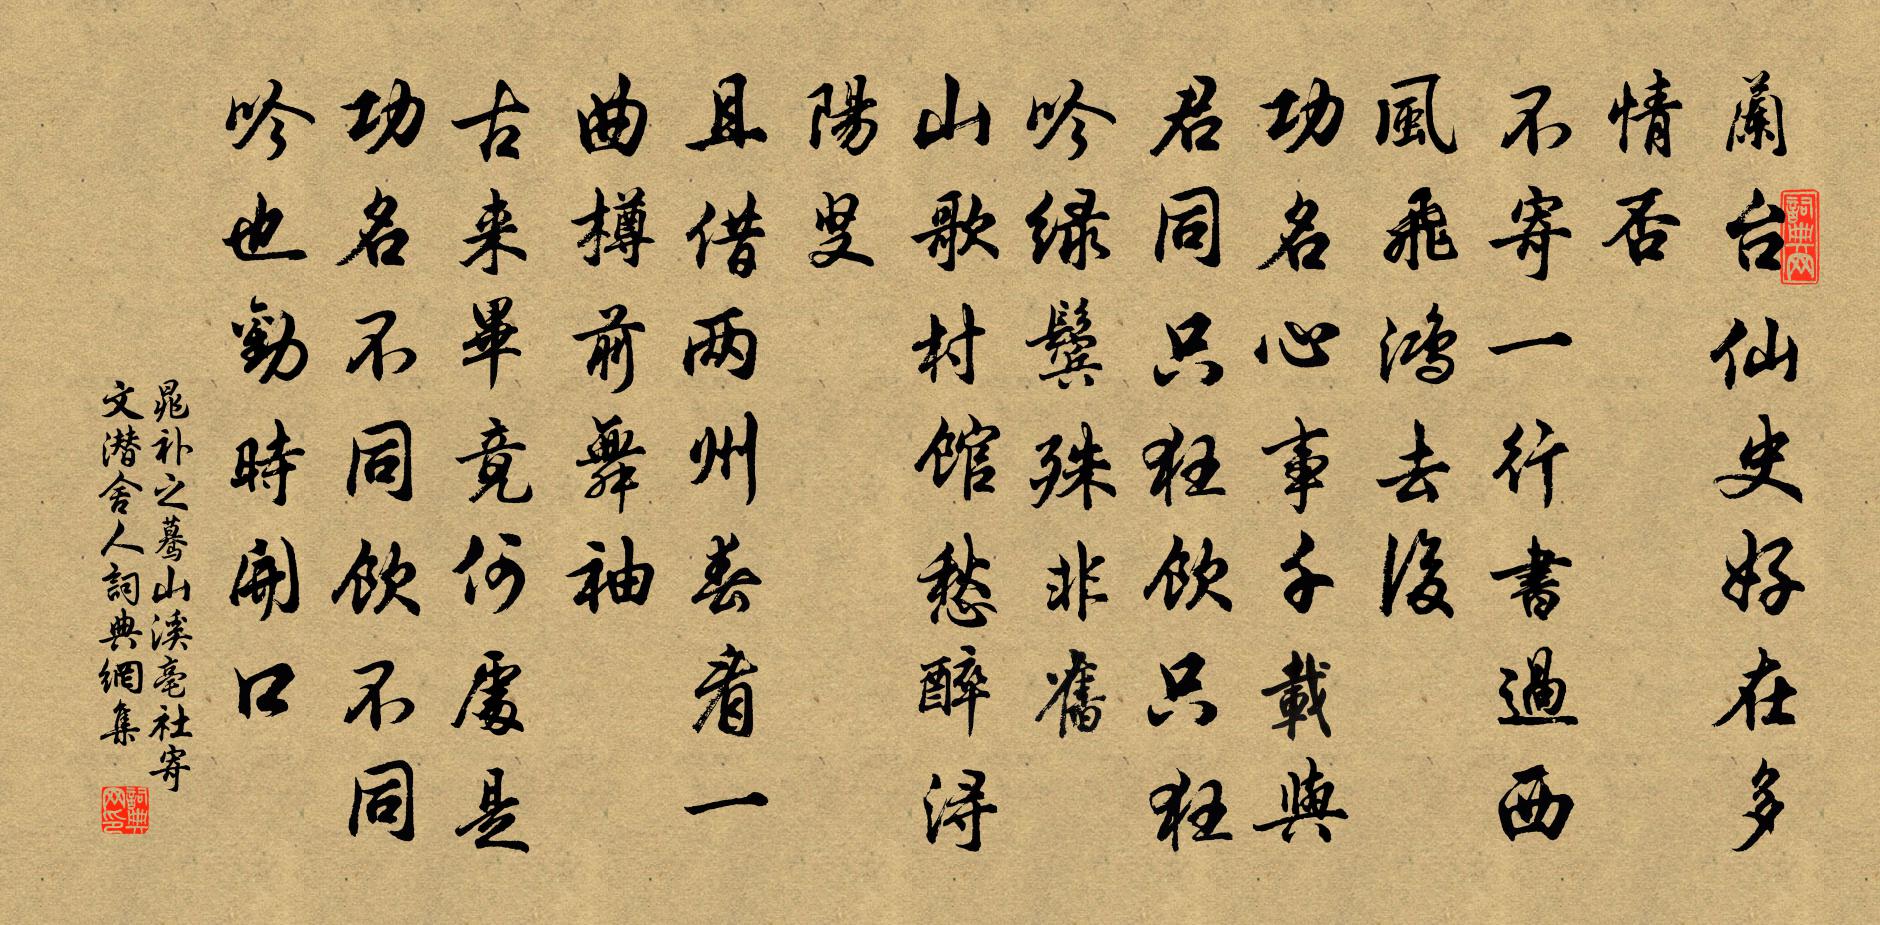 蘭台仙史好在多
情否
不寄一行書過西
風飛鴻去後
功名心事千載與
君同只狂飲只狂
吟綠鬢殊非舊
山歌村館愁醉潯
陽叟
且借两州春看一
曲樽前舞袖
古来畢竟何處是
功名不同飲不同
吟也勸時開口
晁补之驀山溪亳社寄
文潜舍人詞典網集
詞典网
詞典网印